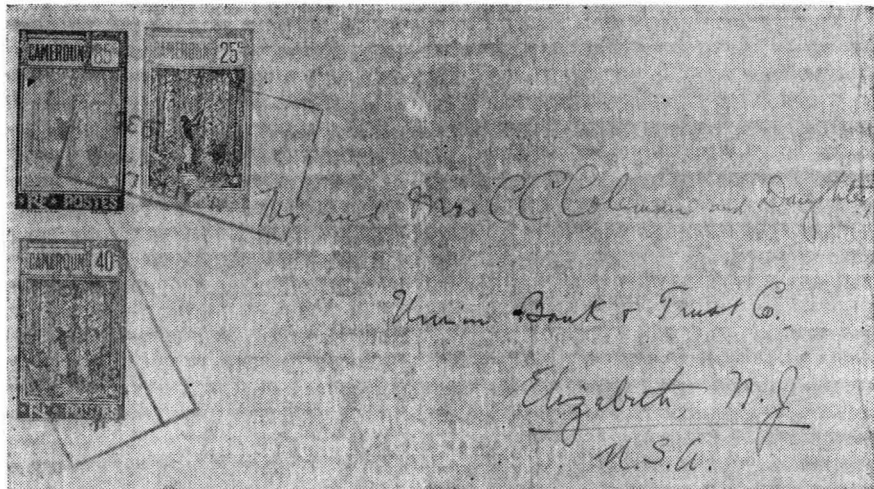 CAMEROUN 85
CAMEROUN 25c
RF POSTES
CAMEROUN 40
RF POSTES
Mr and Mrs C C Coleman and Daughter,
Union Bank & Trust Co.
Elizabeth, N.J
U.S.A.